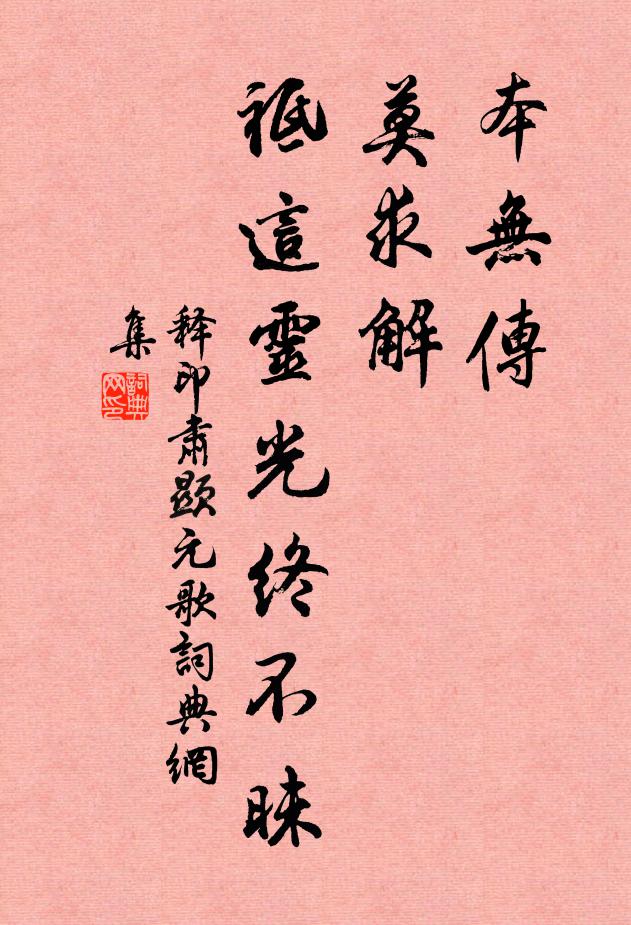 本無傳
莫求解
祗這靈光終不昧
释印肅顯元歌詞典網
集
詞典网印